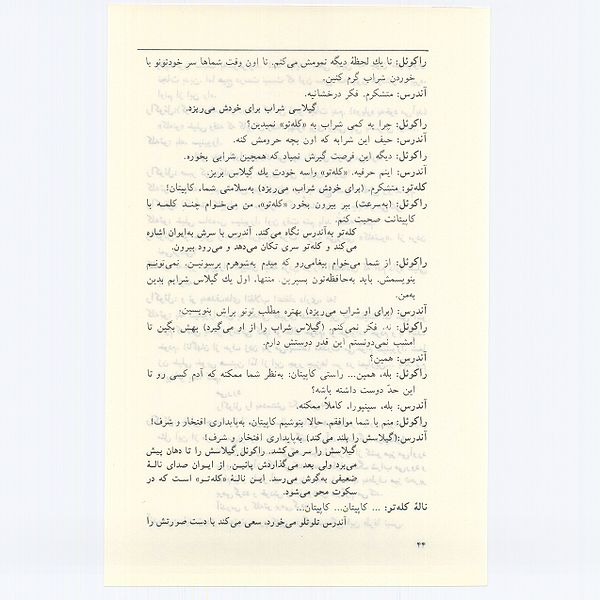 راکوئل: تا یك لحظهٔ دیگه تمومش می‌کنم. تا اون وقت شماها سر خودتونو با
خوردن شراب گرم کنین.
آندرس: متشکرم. فکر درخشانیه.
گیلاسی شراب برای خودش می‌ریزد.
راکوئل: چرا یه کمی شراب به «کله‌تو» نمیدین؟
آندرس: حیف این شرابه که اون بچه حرومش کنه.
راکوئل: دیگه این فرصت گیرش نمیاد که همچین شرابی بخوره.
آندرس: اینم حرفیه. «کله‌تو» واسه خودت یك گیلاس بریز.
کله‌تو: متشکرم. (برای خودش شراب، می‌ریزد) به‌سلامتی شما، کاپیتان!
راکوئل: (به‌سرعت) ببر بیرون بخور «کله‌تو». من می‌خوام چند کلمه با
کاپیتانت صحبت کنم.
کله‌تو به‌آندرس نگاه می‌کند. آندرس با سرش به‌ایوان اشاره
می‌کند و کله‌تو سری تکان می‌دهد و می‌رود بیرون.
راکوئل: از شما می‌خوام پیغامی‌رو که میدم به‌شوهرم برسونین. نمی‌تونیم
بنویسمش. باید به‌حافظه‌تون بسپرین. منتها، اول یك گیلاس شرابم بدین
به‌من.
آندرس: (برای او شراب می‌ریزد) بهتره مطلب تونو براش بنویسین.
راکوئل: نه. فکر نمی‌کنم. (گیلاس شراب را از او می‌گیرد) بهش بگین تا
امشب نمی‌دونستم این قدر دوستش دارم.
آندرس: همین؟
راکوئل: بله، همین... راستی کاپیتان: به‌نظر شما ممکنه که آدم کسی رو تا
این حدّ دوست داشته باشه؟
آندرس: بله، سینیورا، کاملاً ممکنه.
راکوئل: منم با شما موافقم. حالا بنوشیم کاپیتان، به‌پایداری افتخار و شرف!
آندرس:(گیلاسش را بلند می‌کند) به‌پایداری افتخار و شرف!
گیلاسش را سر می‌کشد. راکوئل گیلاسش را تا دهان پیش
می‌برد ولی بعد می‌گذاردش پائین. از ایوان صدای نالهٔ
ضعیفی به‌گوش می‌رسد. این نالهٔ «کله‌تو» است که در
سکوت محو می‌شود.
نالهٔ کله‌تو: ... کاپیتان... کاپیتان...
آندرس تلوتلو می‌خورد، سعی می‌کند با دست صورتش را
۴۴